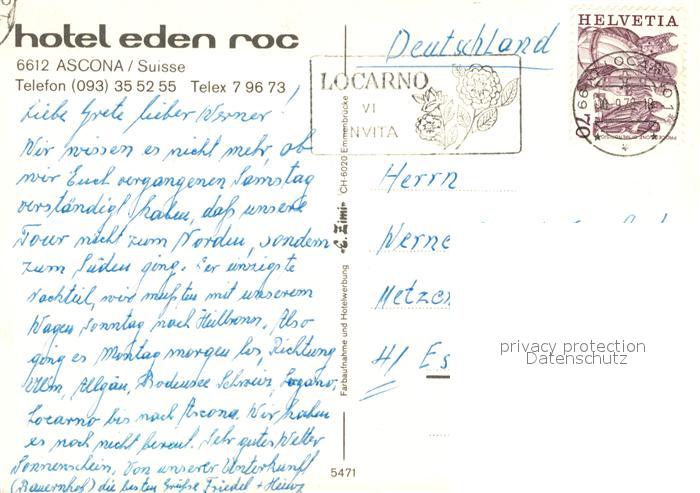 hotel eden roc
6612 ASCONA / Suisse
Telefon (093) 35 52 55 Telex 7 96 73
Liebe Grete lieber Werner!
Wir wissen es nicht mehr, ob
wir Euch vergangenen Samstag
verständigt haben, daß unsere
Tour nicht zum Norden, sondern
zum Süden ging. Der einzigste
Nachteil, wir mußten mit unserem
Wagen, Sonntag nach Heilbronn. Also
ging es Montag morgen los, Richtung
Ulm, Allgäu, Bodensee Schweiz, Lugano,
Locarno bis nach Ascona. Wir haben
es noch nicht bereut. Sehr gutes Wetter
Sonnenschein. Von unserer Unterkunft
(Bauernhof) die besten Grüße Friedel + Heinz
Farbaufnahme und Hotelwerbung
CH-6020 Emmenbrücke
5471
Deutschland
LOCARNO
VI
INVITA
HELVETIA
70
Herrn
Werne
Metze
H/ Es
privacy protection
Datenschutz